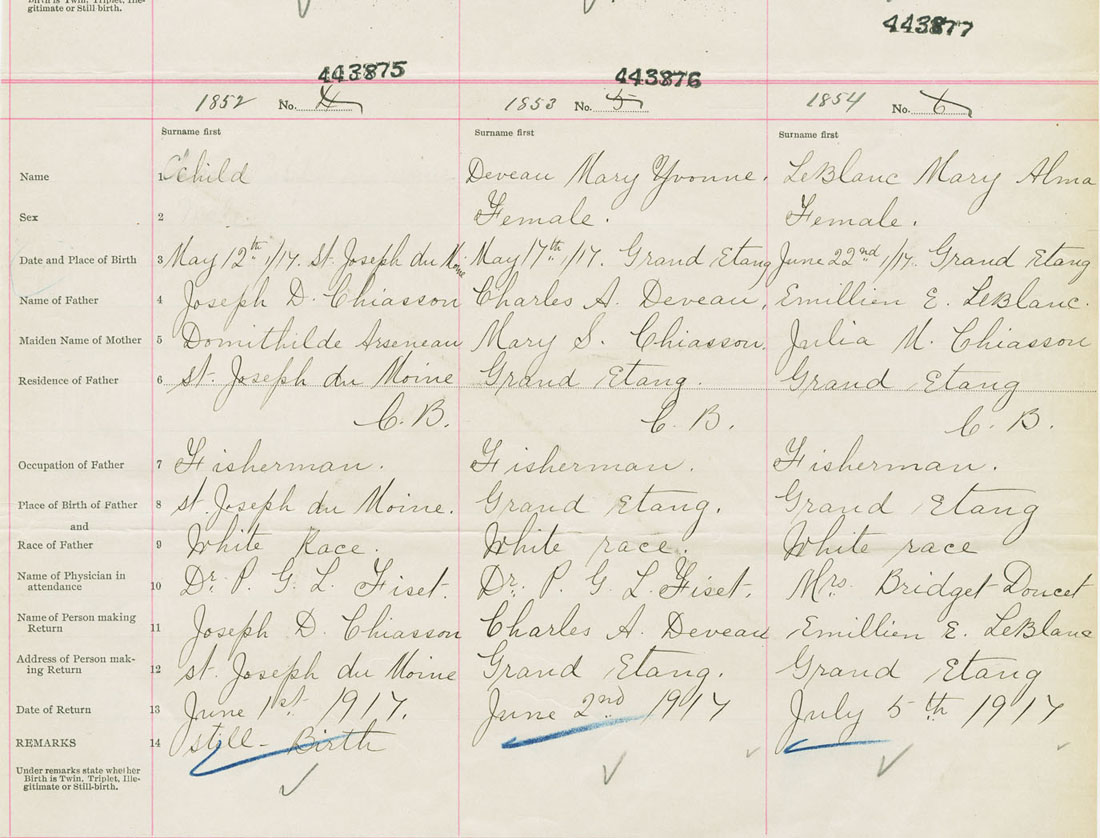 Birth is Twin, Triplet, Ille-
gitimate or Still-birth.
443877
443875 443876
1852 No. 4 1853 No. 5 1854 No. 6
Surname first Surname first Surname first
Name 1 Child Deveau Mary Yvonne. LeBlanc Mary Alma
Sex 2 Female. Female.
Date and Place of Birth 3 May 12th /17. St. Joseph du Moine May 17th /17. Grand Etang June 22nd /17. Grand Etang
Name of Father 4 Joseph D. Chiasson Charles A. Deveau, Emillien E. LeBlanc.
Maiden Name of Mother 5 Domithilde Arseneau Mary S. Chiasson. Julia M. Chiasson
Residence of Father 6 St. Joseph du Moine Grand Etang. Grand Etang
C. B. C. B. C. B.
Occupation of Father 7 Fisherman. Fisherman. Fisherman.
Place of Birth of Father 8 St. Joseph du Moine. Grand Etang. Grand Etang
and
Race of Father 9 White Race. White race. White race
Name of Physician in
attendance 10 Dr. P. G. L. Fiset. Dr. P. G. L. Fiset. Mrs. Bridget Doucet
Name of Person making
Return 11 Joseph D. Chiasson Charles A. Deveau Emillien E. LeBlanc
Address of Person mak-
ing Return 12 St. Joseph du Moine Grand Etang. Grand Etang
Date of Return 13 June 1st 1917. June 2nd 1917 July 5th 1917
REMARKS 14 Still-Birth
Under remarks state whether
Birth is Twin, Triplet, Ille-
gitimate or Still-birth.